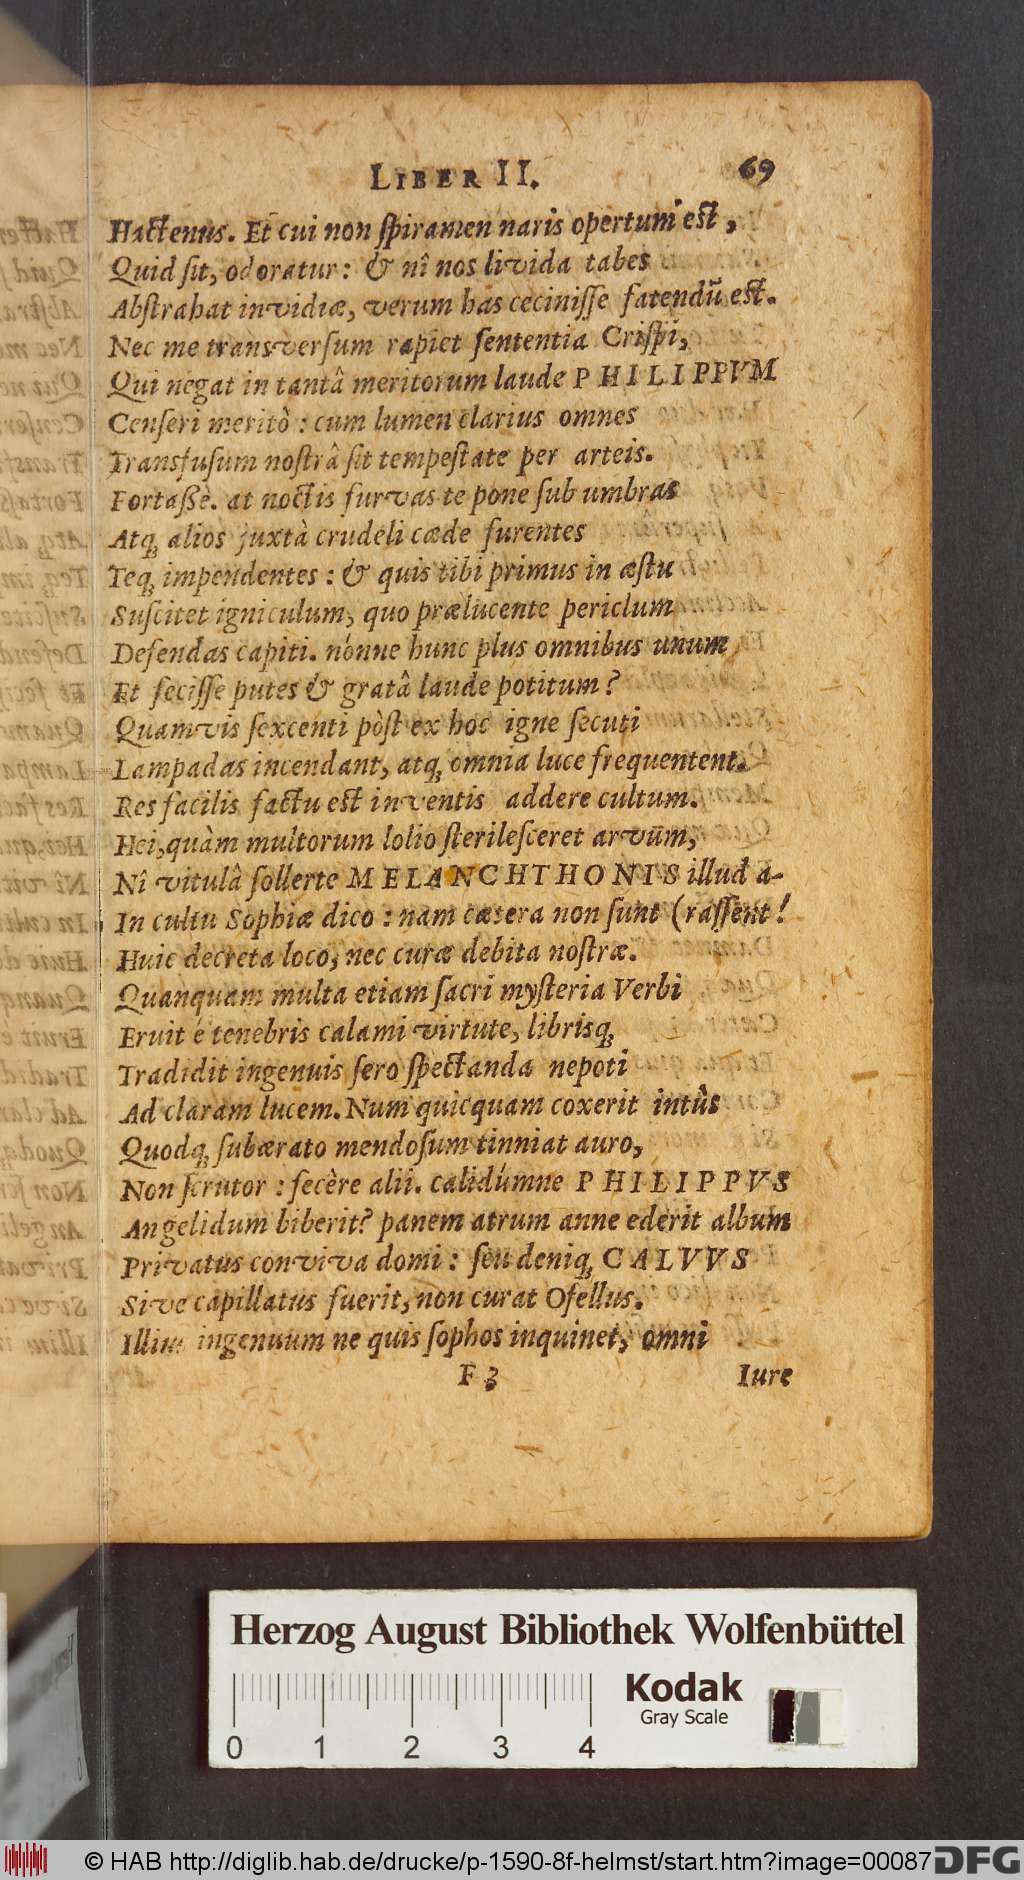 LIBER II. 69
Hactenus. Et cui non ſpiramen naris opertum est,
Quid ſit, odoratur: & nî nos livida tabes
Abſtrahat invidiæ, verum has ceciniſſe fatendū est.
Nec me transverſum rapiet ſententia Criſpi,
Qui negat in tantâ meritorum laude PHILIPPVM
Cenſeri meritò: cum lumen clarius omnes
Transfuſum noſtrâ ſit tempeſtate per arteis.
Fortaßè. at noctis furvas te pone ſub umbras
Atq́; alios juxtà crudeli cæde furentes
Teq́; impendentes: & quis tibi primus in æſtu
Suſcitet igniculum, quo prælucente periclum
Defendas capiti. nónne hunc plus omnibus unum
Et feciſſe putes & gratâ laude potitum?
Quamvis ſexcenti pòſt ex hoc igne ſecuti
Lampadas incendant, atq́; omnia luce frequentent.
Res facilis factu est inventis addere cultum.
Hei, quàm multorum lolio ſterileſceret arvum,
Nî vitulâ ſollerte MELANCHTHONIS illud a-
In cultu Sophiæ dico: nam cætera non ſunt (raſſent!
Huic decreta loco, nec curæ debita noſtræ.
Quanquam multa etiam ſacri myſteria Verbi
Eruit é tenebris calami virtute, librisq́;
Tradidit ingenuis ſero ſpectanda nepoti
Ad claram lucem. Num quicquam coxerit intùs
Quodq́; ſubærato mendoſum tinniat auro,
Non ſcrutor: fecère alii. calidúmne PHILIPPVS
An gelidum biberit? panem atrum anne ederit album
Privatus conviva domi: ſeu deniq́; CALVVS
Sive capillatus fuerit, non curat Ofellus.
Illim ingenuum ne quis ſophos inquinet, omni
F 3 Iure
Herzog August Bibliothek Wolfenbüttel
0 1 2 3 4
Kodak
Gray Scale
© HAB http://diglib.hab.de/drucke/p-1590-8f-helmst/start.htm?image=00087
DFG